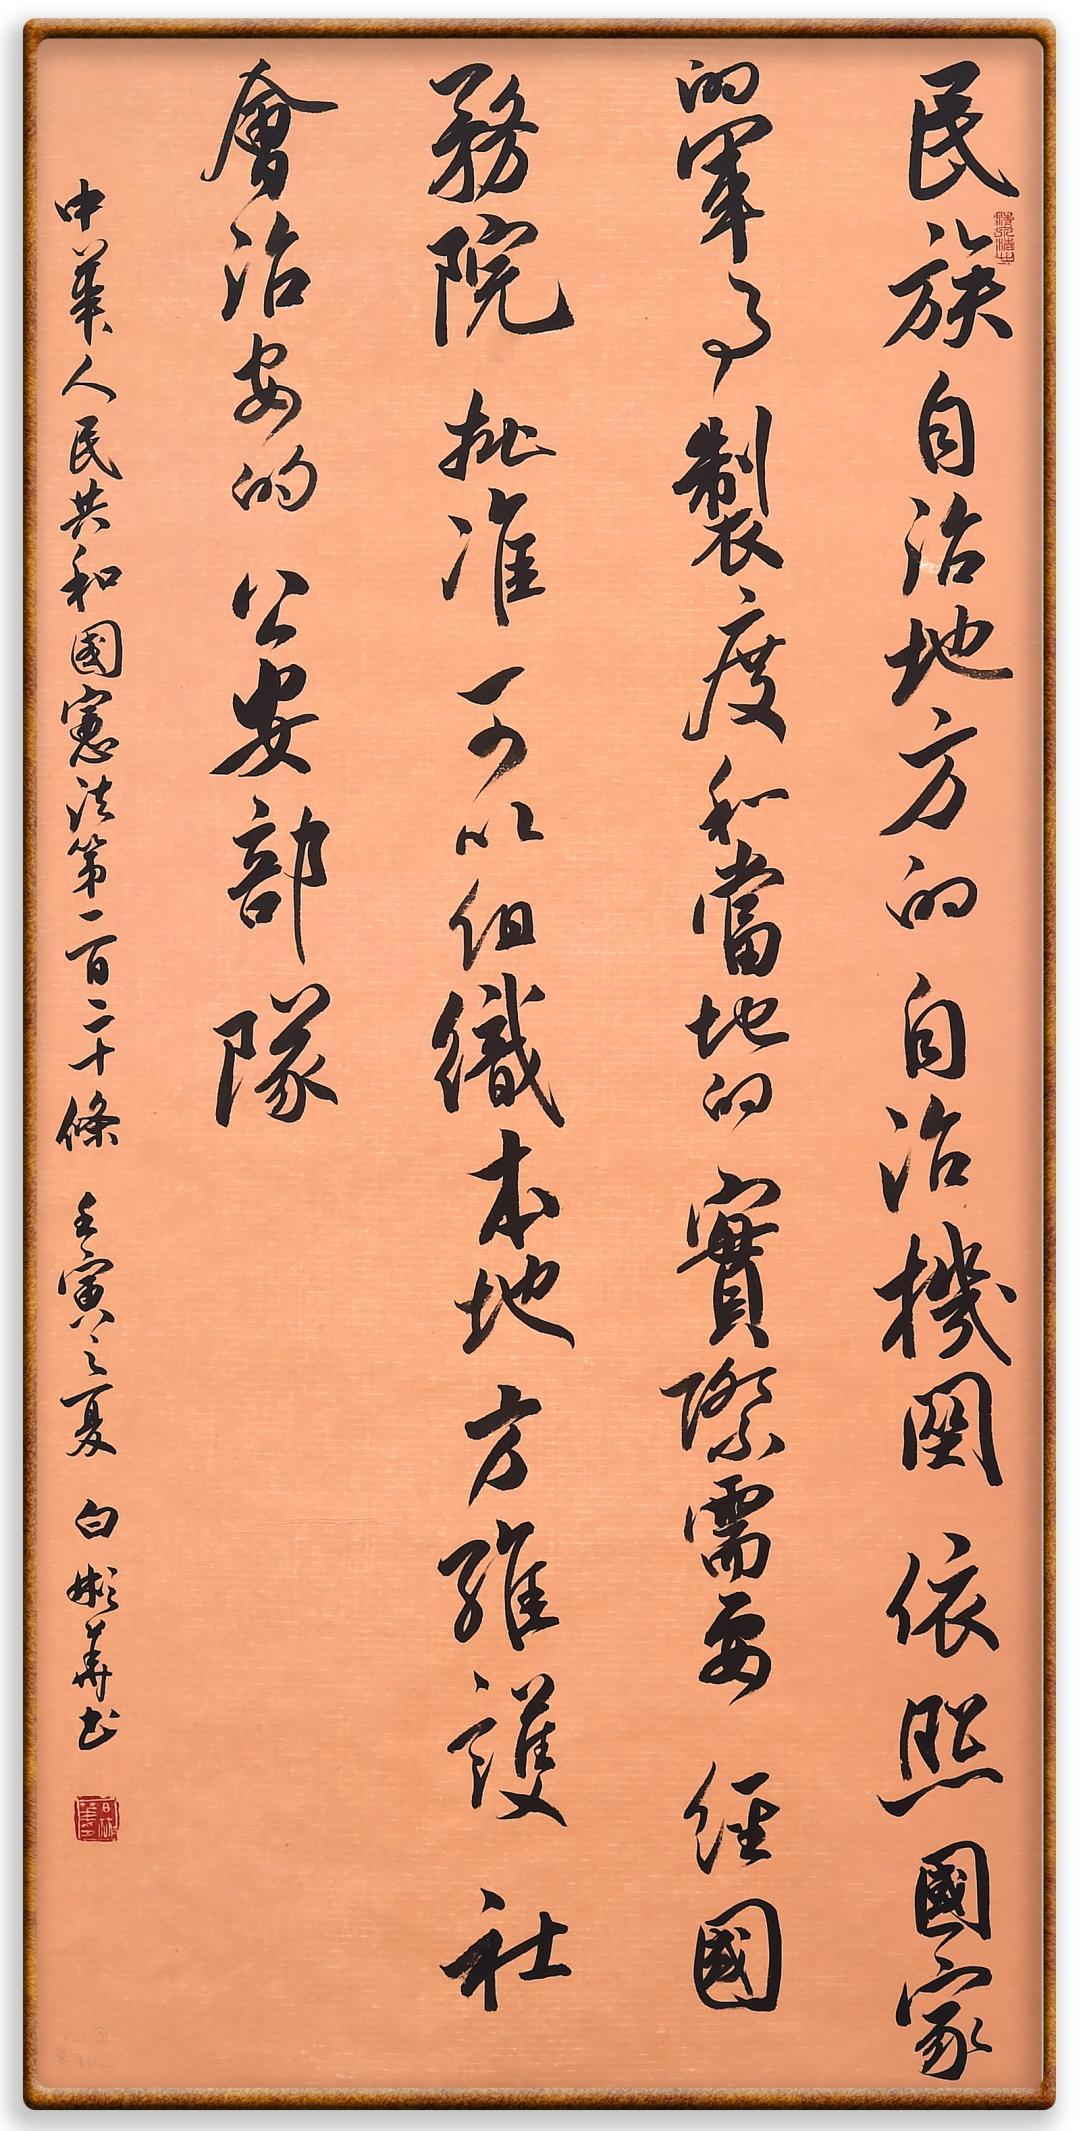 民族自治地方的自治機関依照國家
的軍事製度和當地的實際需要經國
務院批准可以组織本地方維護社
會治安的公安部隊
中華人民共和國憲法第一百二十條壬寅之夏白彬華书